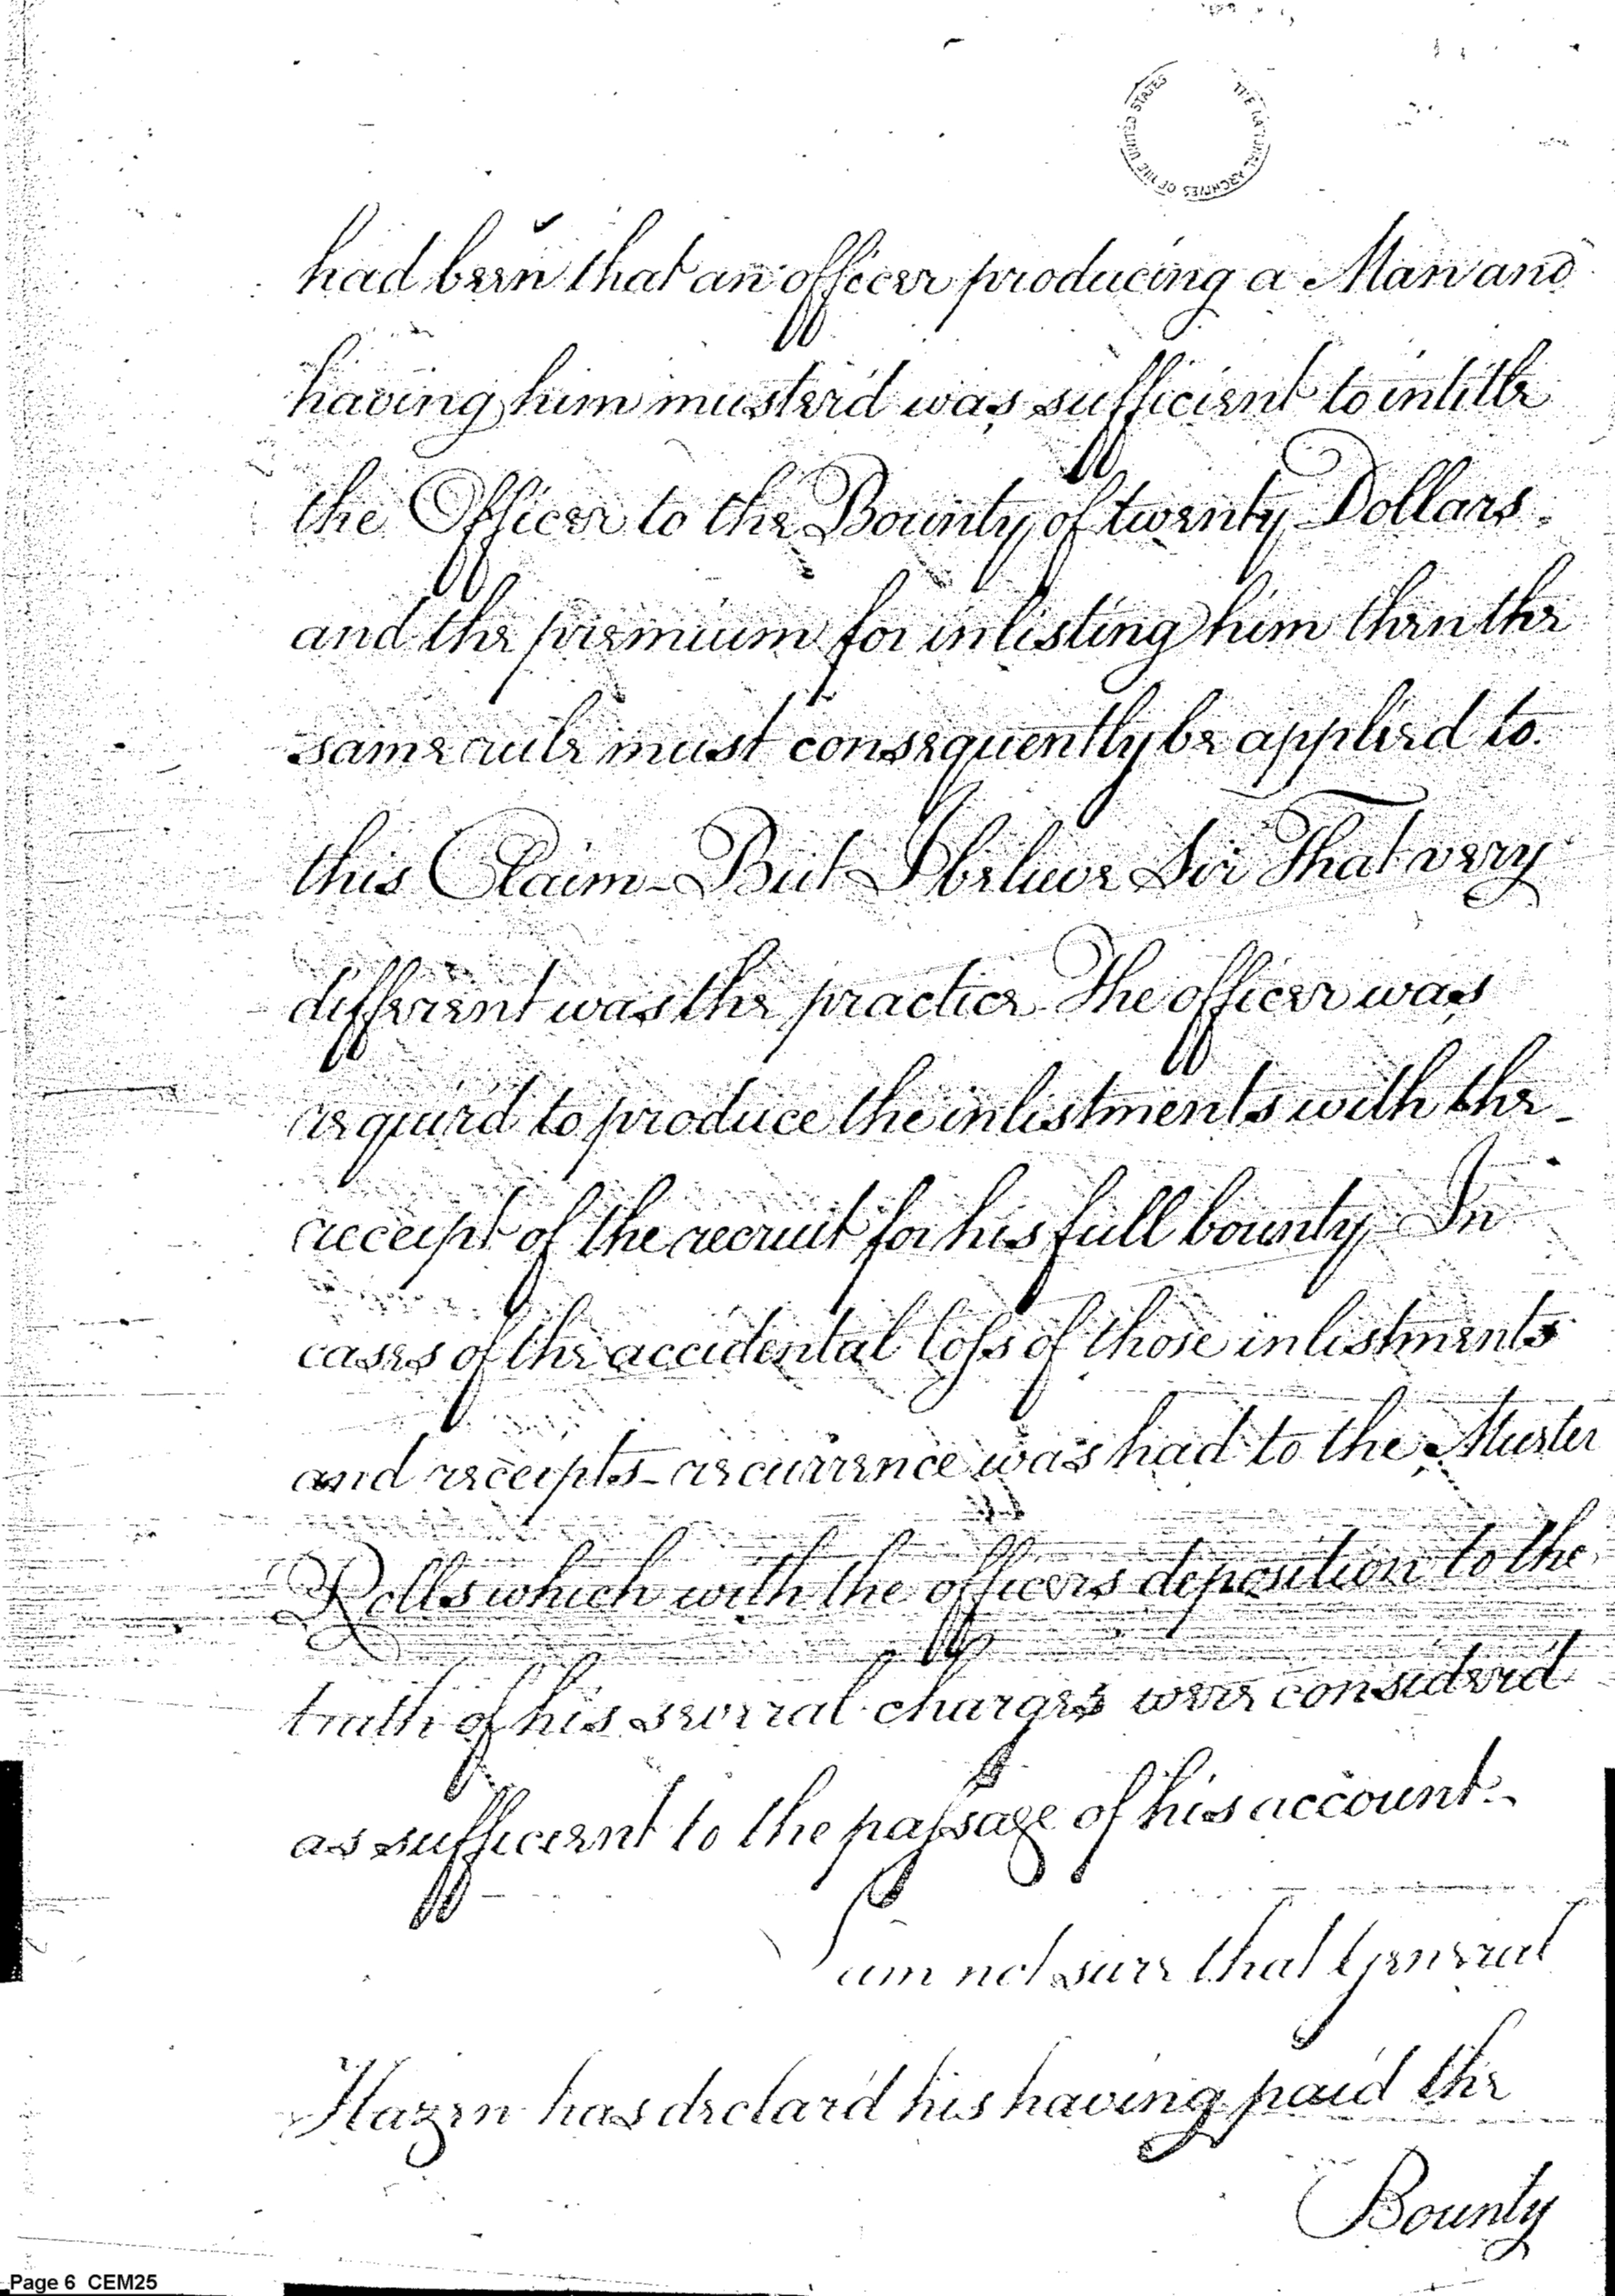 THE NATIONAL ARCHIVES OF THE UNITED STATES
had been that an officer producing a Man and
having him muster'd was sufficient to intitle
the Officer to the Bounty of twenty Dollars.
and the premium for inlisting him then the
same rule must consequently be applied to.
this Claim - But I believe Sir That very
different was the practice The officer was
requir'd to produce the inlistments with the
receipt of the recruit for his full bounty. In
cases of the accidental loss of those inlistments
and receipts - recurrence was had to the Muster
Rolls which with the officers deposition to the
truth of his several charges were consider'd
as sufficent to the passage of his account. -
I am not sure that General
Hazen has declar'd his having paid the
Bounty
Page 6 CEM25